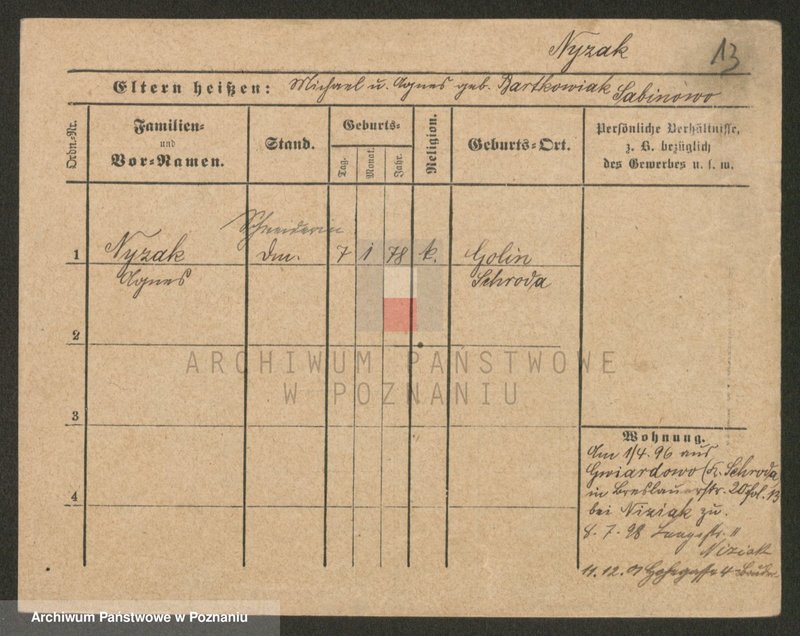 Nyzak 13
Eltern heißen: Michael u. Agnes geb. Bartkowiak Sabinowo
Ordn.-Nr.
Familien-
und
Vor-Namen.
Stand.
Geburts-
Tag.
Monat.
Jahr.
Religion.
Geburts-Ort.
Persönliche Verhältnisse,
z. B. bezüglich
des Gewerbes u. s. w.
Schneiderin
1 Nyzak
Dm. 7 1 78 k. Golin
Agnes Schroda
2
ARCHIWUM PAŃSTWOWE
W POZNANIU
3
4
Wohnung.
Am 1/4. 96 aus
Gwiardowo Kr. Schroda
in Breslauerstr. 20 fol. 13
bei Niziak zu.
8. 7. 98 Langestr. 11
Niziak
11. 12. 01
Archiwum Państwowe w Poznaniu